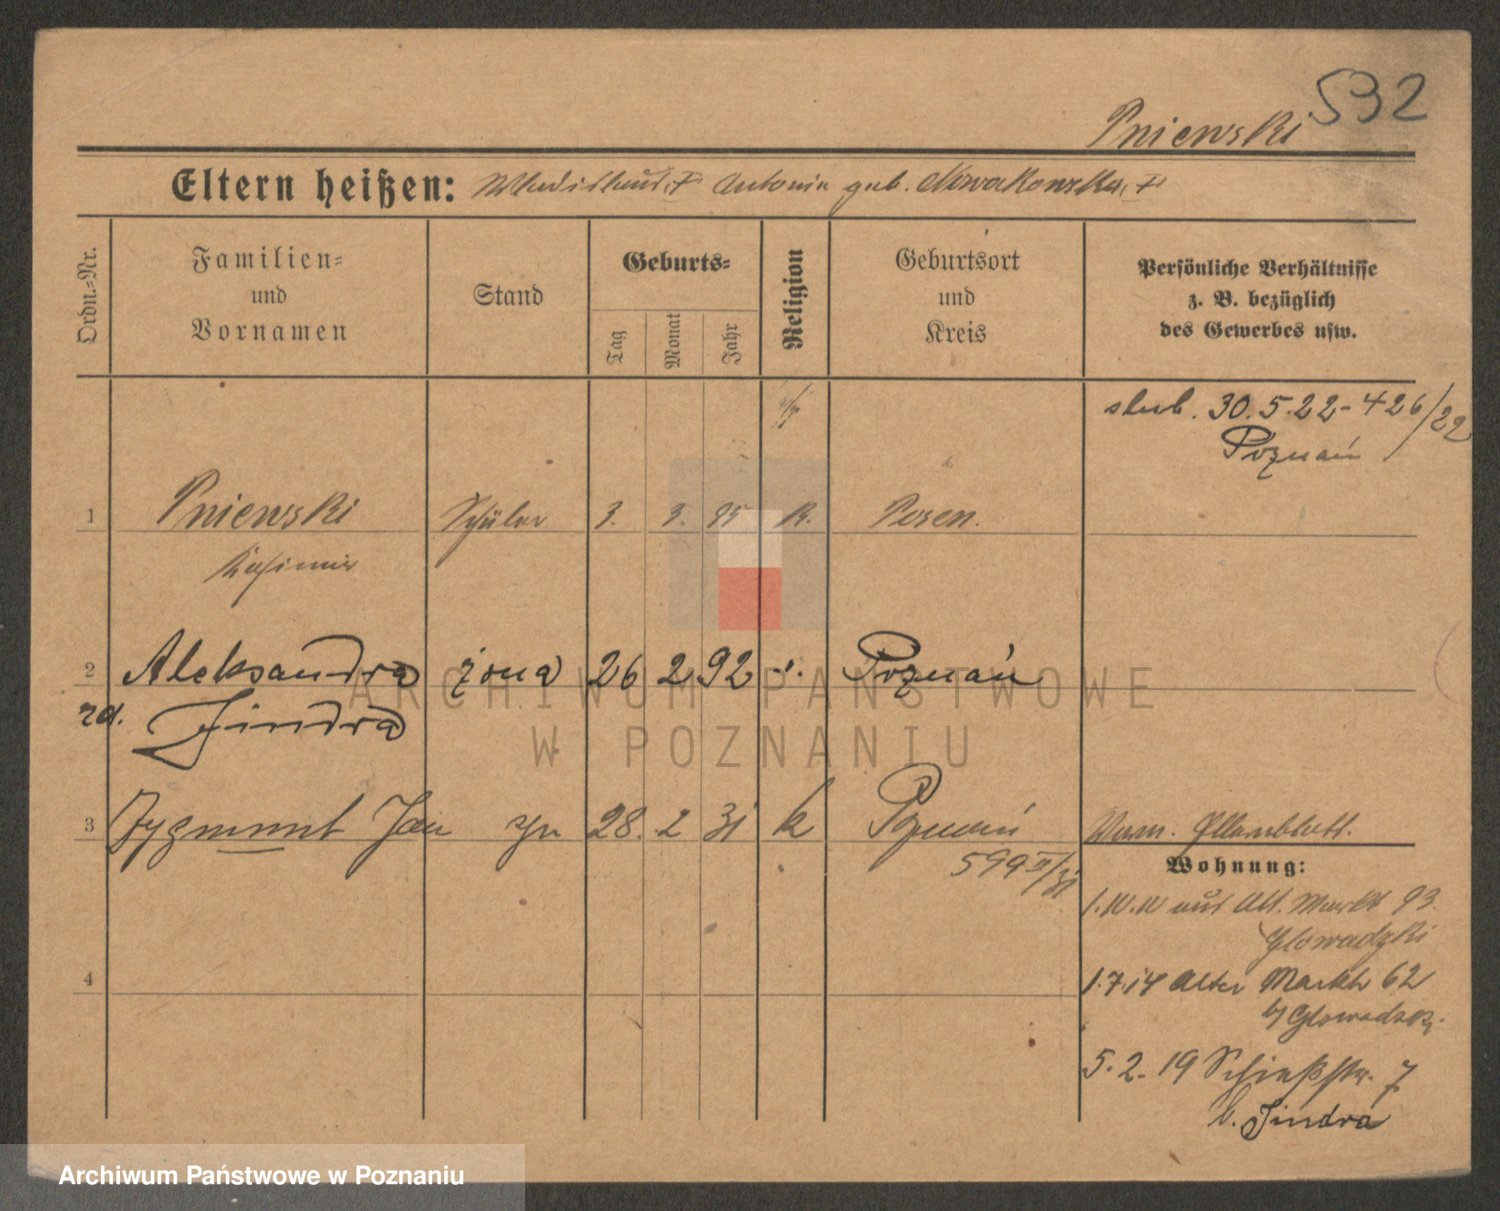 592
Pniewski
Eltern heißen: Wladislaus, + Antonia geb. Nowakowska, +
Ordn.-Nr.
Familien-
und
Vornamen
Stand
Geburts-
Tag
Monat
Jahr
Religion
Geburtsort
und
Kreis
Persönliche Verhältnisse
z. B. bezüglich
des Gewerbes usw.
slub. 30.5.22 - 426/22
Poznań
1 Pniewski Schüler 3. 3. 95 K. Posen.
Kasimir
2 Aleksandra żona 26 2 92 Poznań
zd. Jindra
3 Zygmunt Jan syn 28. 2 31 k Poznań
599 II/31
Elternblatt.
Wohnung:
aus Alt. Markt 93
Glowadzki
4
1.7.14 Alter Markt 62
b/ Glowadzki
5.2.19 Schießstr. 7
b. Jindra
ARCHIWUM PAŃSTWOWE
W POZNANIU
Archiwum Państwowe w Poznaniu